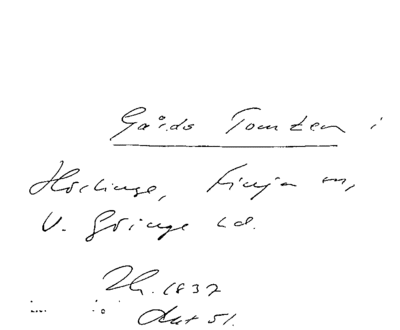 Gårds Tomten i
Hörlinge, Finja sn,
V. Göinge hd.
Ih. 1837
Akt 51.